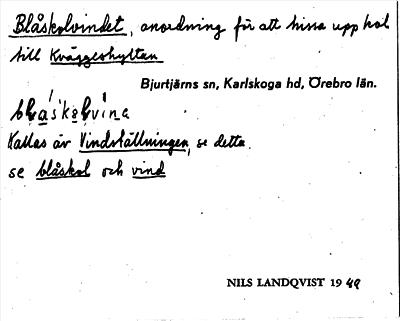 Blåskolvindet, anordning för att hissa upp kol
till Kväggeshyttan
Bjurtjärns sn, Karlskoga hd, Örebro län.
Kallas äv Vindställningen, se detta.
se blåskol och vind
NILS LANDQVIST 1949